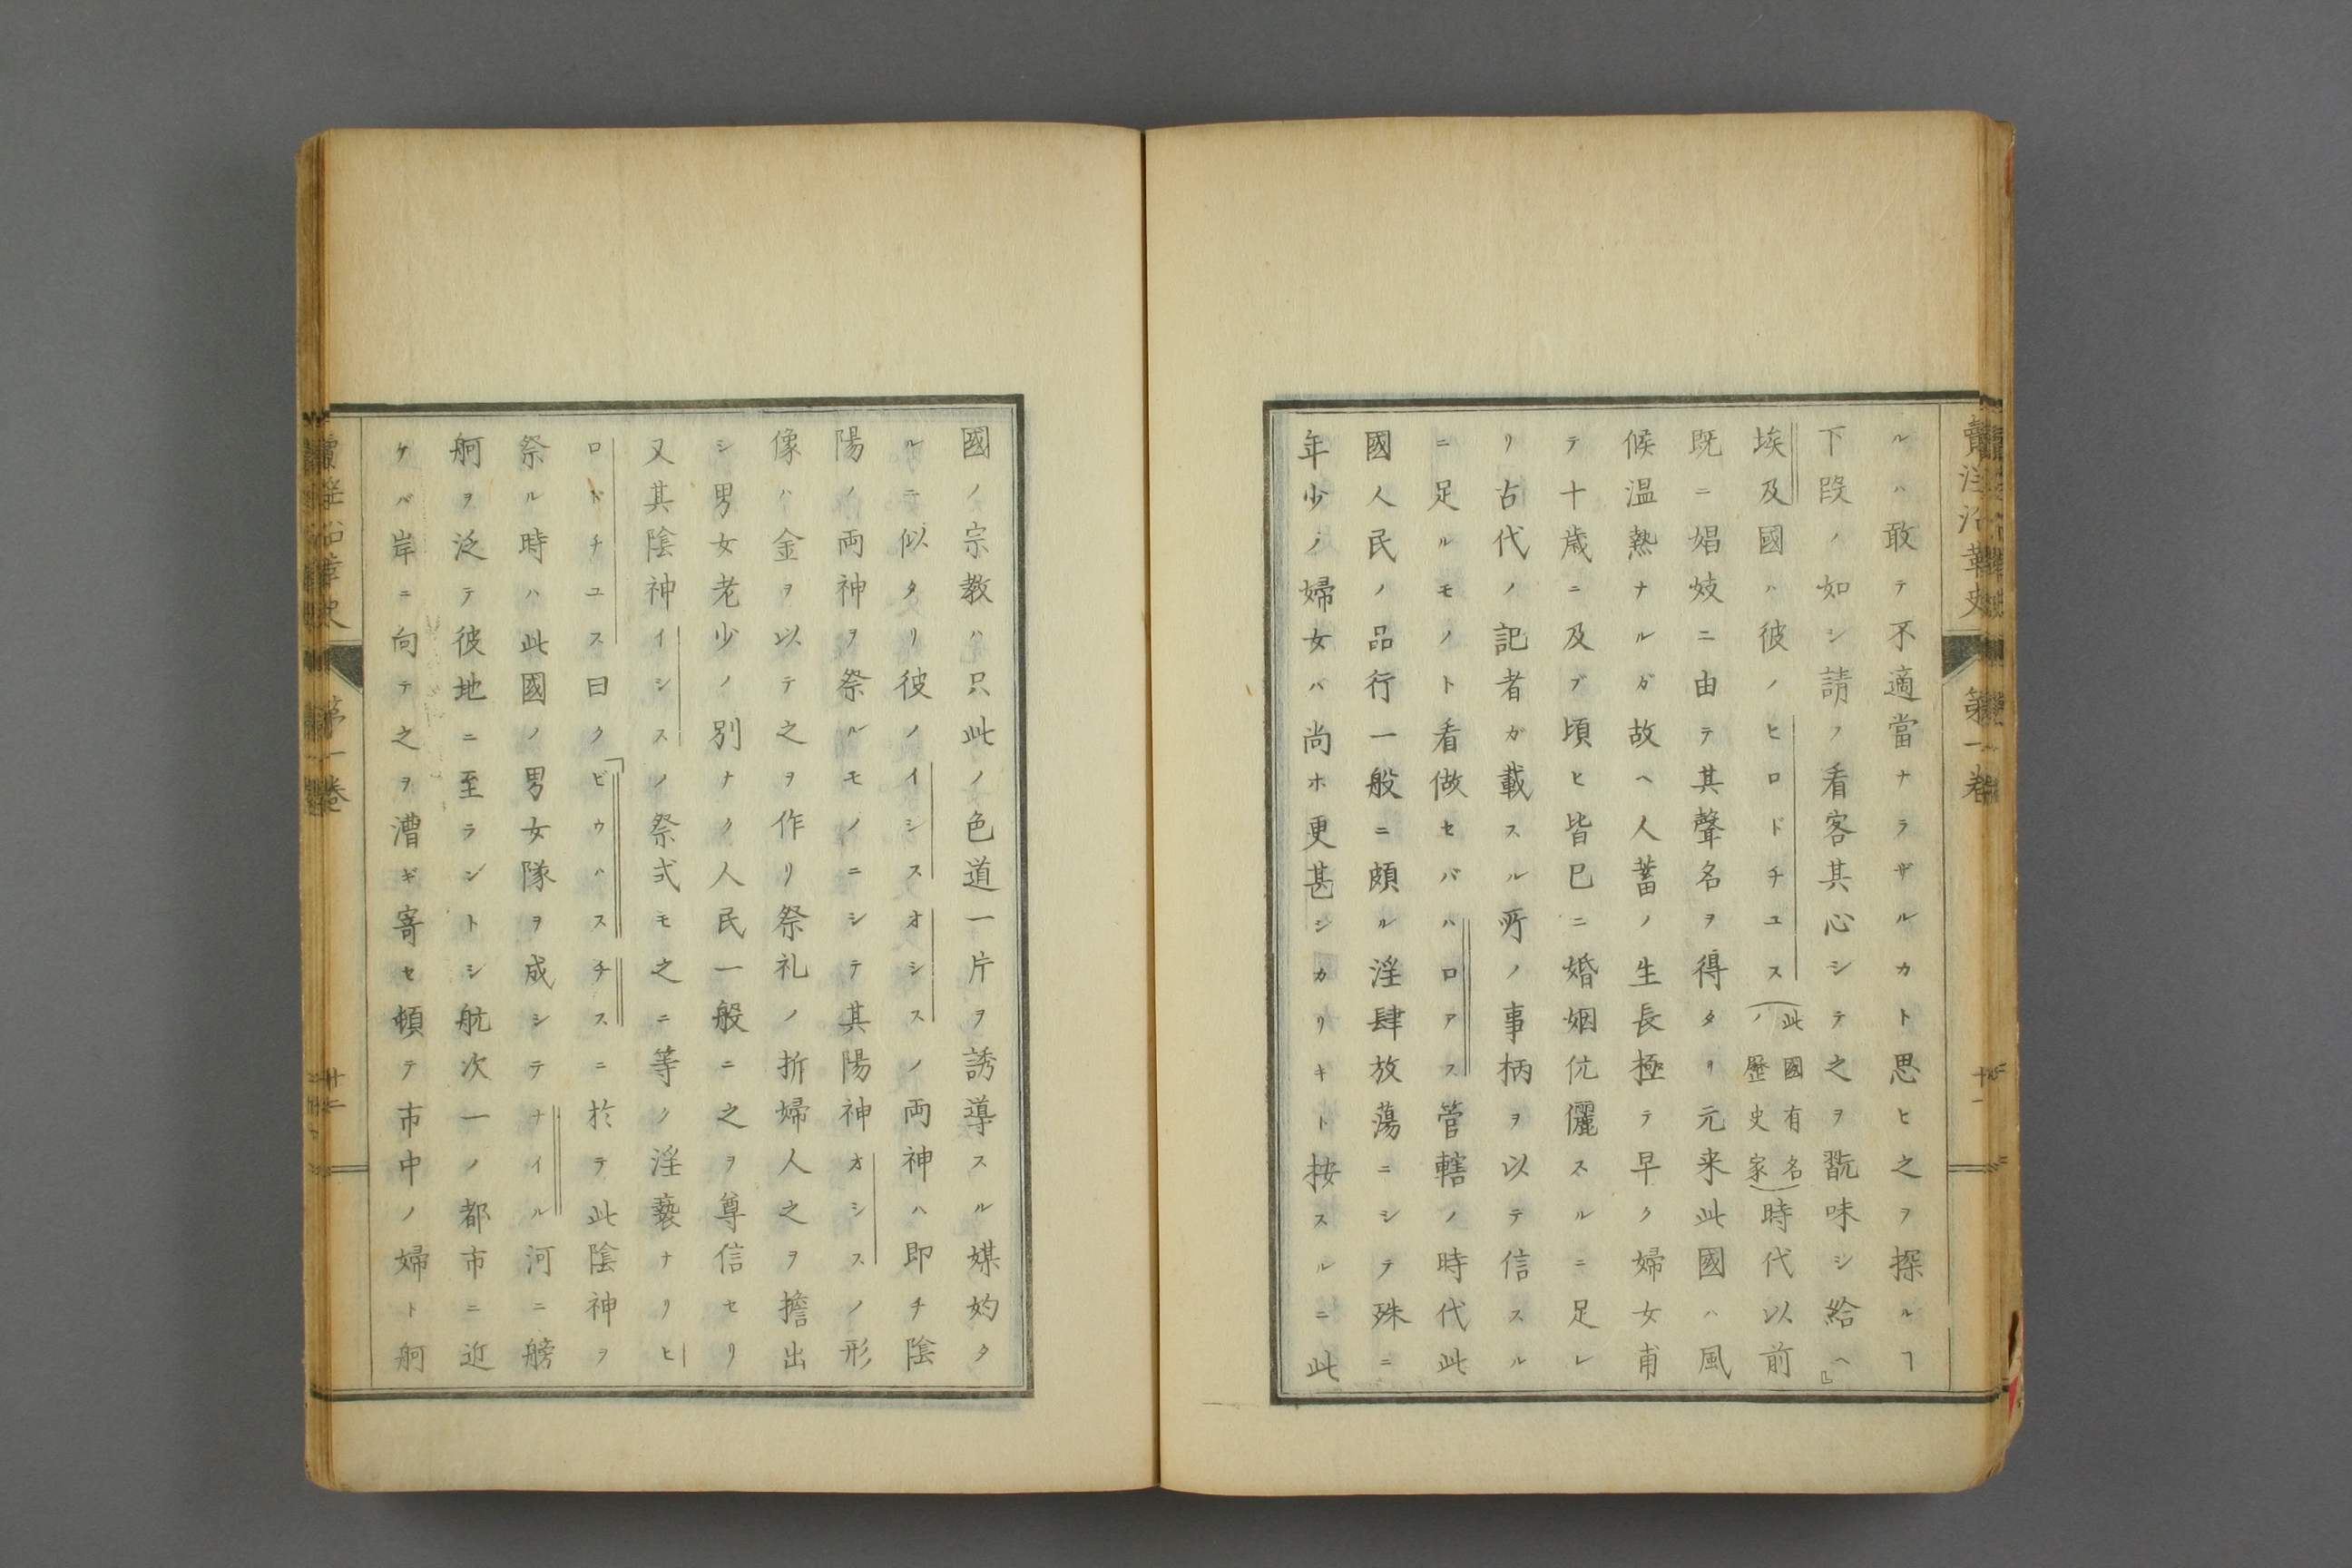 賣淫沿革史
第一巻
ルハ敢テ不適當ナラザルカト思ヒ之ヲ探ルヿ
下段ノ如シ請フ看客其心シテ之ヲ翫味シ給ヘ』
埃及國ハ彼ノヒロドチユス(此國有名ノ歴史家)時代以前
既ニ娼妓ニ由テ其聲名ヲ得タリ元来此國ハ風
候温熱ナルガ故ヘ人蓄ノ生長極テ早ク婦女甫
テ十歳ニ及ブ頃ヒ皆巳ニ婚姻伉儷スルニ足レ
リ古代ノ記者ガ載スル所ノ事柄ヲ以テ信スル
ニ足ルモノト看做セバハロアス管轄ノ時代此
國人民ノ品行一般ニ頗ル淫肆放蕩ニシテ殊ニ
年少ノ婦女バ尚ホ更甚シカリキト按スルニ此
國ノ宗教ハ只此ノ色道一片ヲ誘導スル媒妁タ
ルニ似タリ彼ノイシスオシスノ両神ハ即チ陰
陽ノ両神ヲ祭ルモノニシテ其陽神オシスノ形
像ハ金ヲ以テ之ヲ作リ祭礼ノ折婦人之ヲ擔出
シ男女老少ノ別ナク人民一般ニ之ヲ尊信セリ
又其陰神イシスノ祭式モ之ニ等ク淫褻ナリヒ
ロドチユス曰ク「ビウハスチスニ於テ此陰神ヲ
祭ル時ハ此國ノ男女隊ヲ成シテナイル河ニ艕
舸ヲ泛テ彼地ニ至ラントシ航次一ノ都市ニ近
ケバ岸ニ向テ之ヲ漕ギ寄セ頓テ市中ノ婦ト舸
賣淫沿革史
第一巻